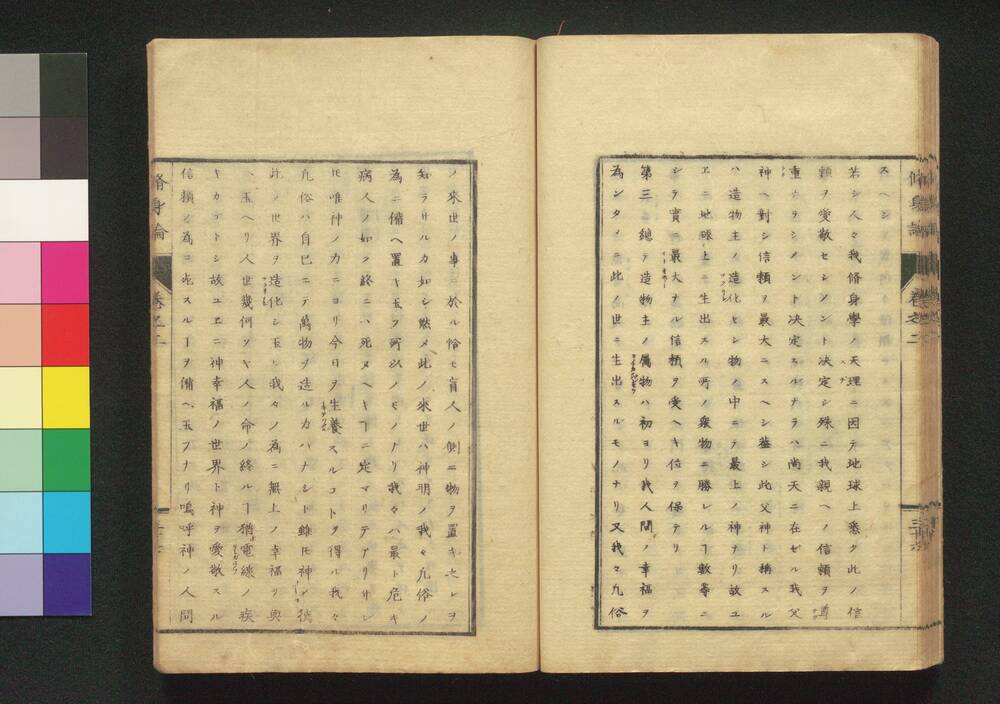 スヘシ
若シ人々我脩身學ノ天理ニ因テ地球上悉ク此ノ信
頼ヲ愛敬セシメント决定シ殊ニ我親ヘノ信頼ヲ尊
重セラシメント决定スルナラハ尚天ニ在ゼル我父
神ヘ對シ信頼ヲ最大ニスヘシ蓋シ此父神ト稱スル
ハ造物主ノ造化セシ物ノ中ニテ最上ノ神ナリ故ユ
エニ地球上ニ生出スル所ノ衆物ニ勝レルヿ數等ニ
シテ實ニ最大ナル信頼ヲ受ヘキ位ヲ保テリ
第三 總テ造物主ノ屬物ハ初ヨリ我人間ノ幸福ヲ
為ンタメニ此ノ世ニ生出スルモノナリ又我々凡俗
脩身論 卷之二
ノ來世ノ事ニ於ル恰モ盲人ノ側ニ物ヲ置キ之レヲ
知ラサルカ如シ然メ此ノ來世ハ神明ノ我々凡俗ノ
為ニ備ヘ置キ玉フ所以ノモノナリ我々ハ最ト危キ
病人ノ如ク終ニハ死ヌヘキヿニ定マリテアリサレ
𪜈唯神ノ力ニヨリ今日ヲ生養スルコトヲ得ル我々
凡俗ハ自巳ニテ萬物ヲ造ル力ハナシト雖𪜈神ノ德
此ノ世界ヲ造化シ玉ヒ我々ノ為ニ無上ノ幸福リ與
ヘ玉ヘリ人世幾何ソヤ人ノ命ノ終ルヿ猶電線ノ疾
キカコトシ故ユヱニ神幸福ノ世界ト神ヲ愛敬スル
信頼ノ為ニ死スルヿヲ備ヘ玉フナリ嗚呼神ノ人間
脩身論 卷之二